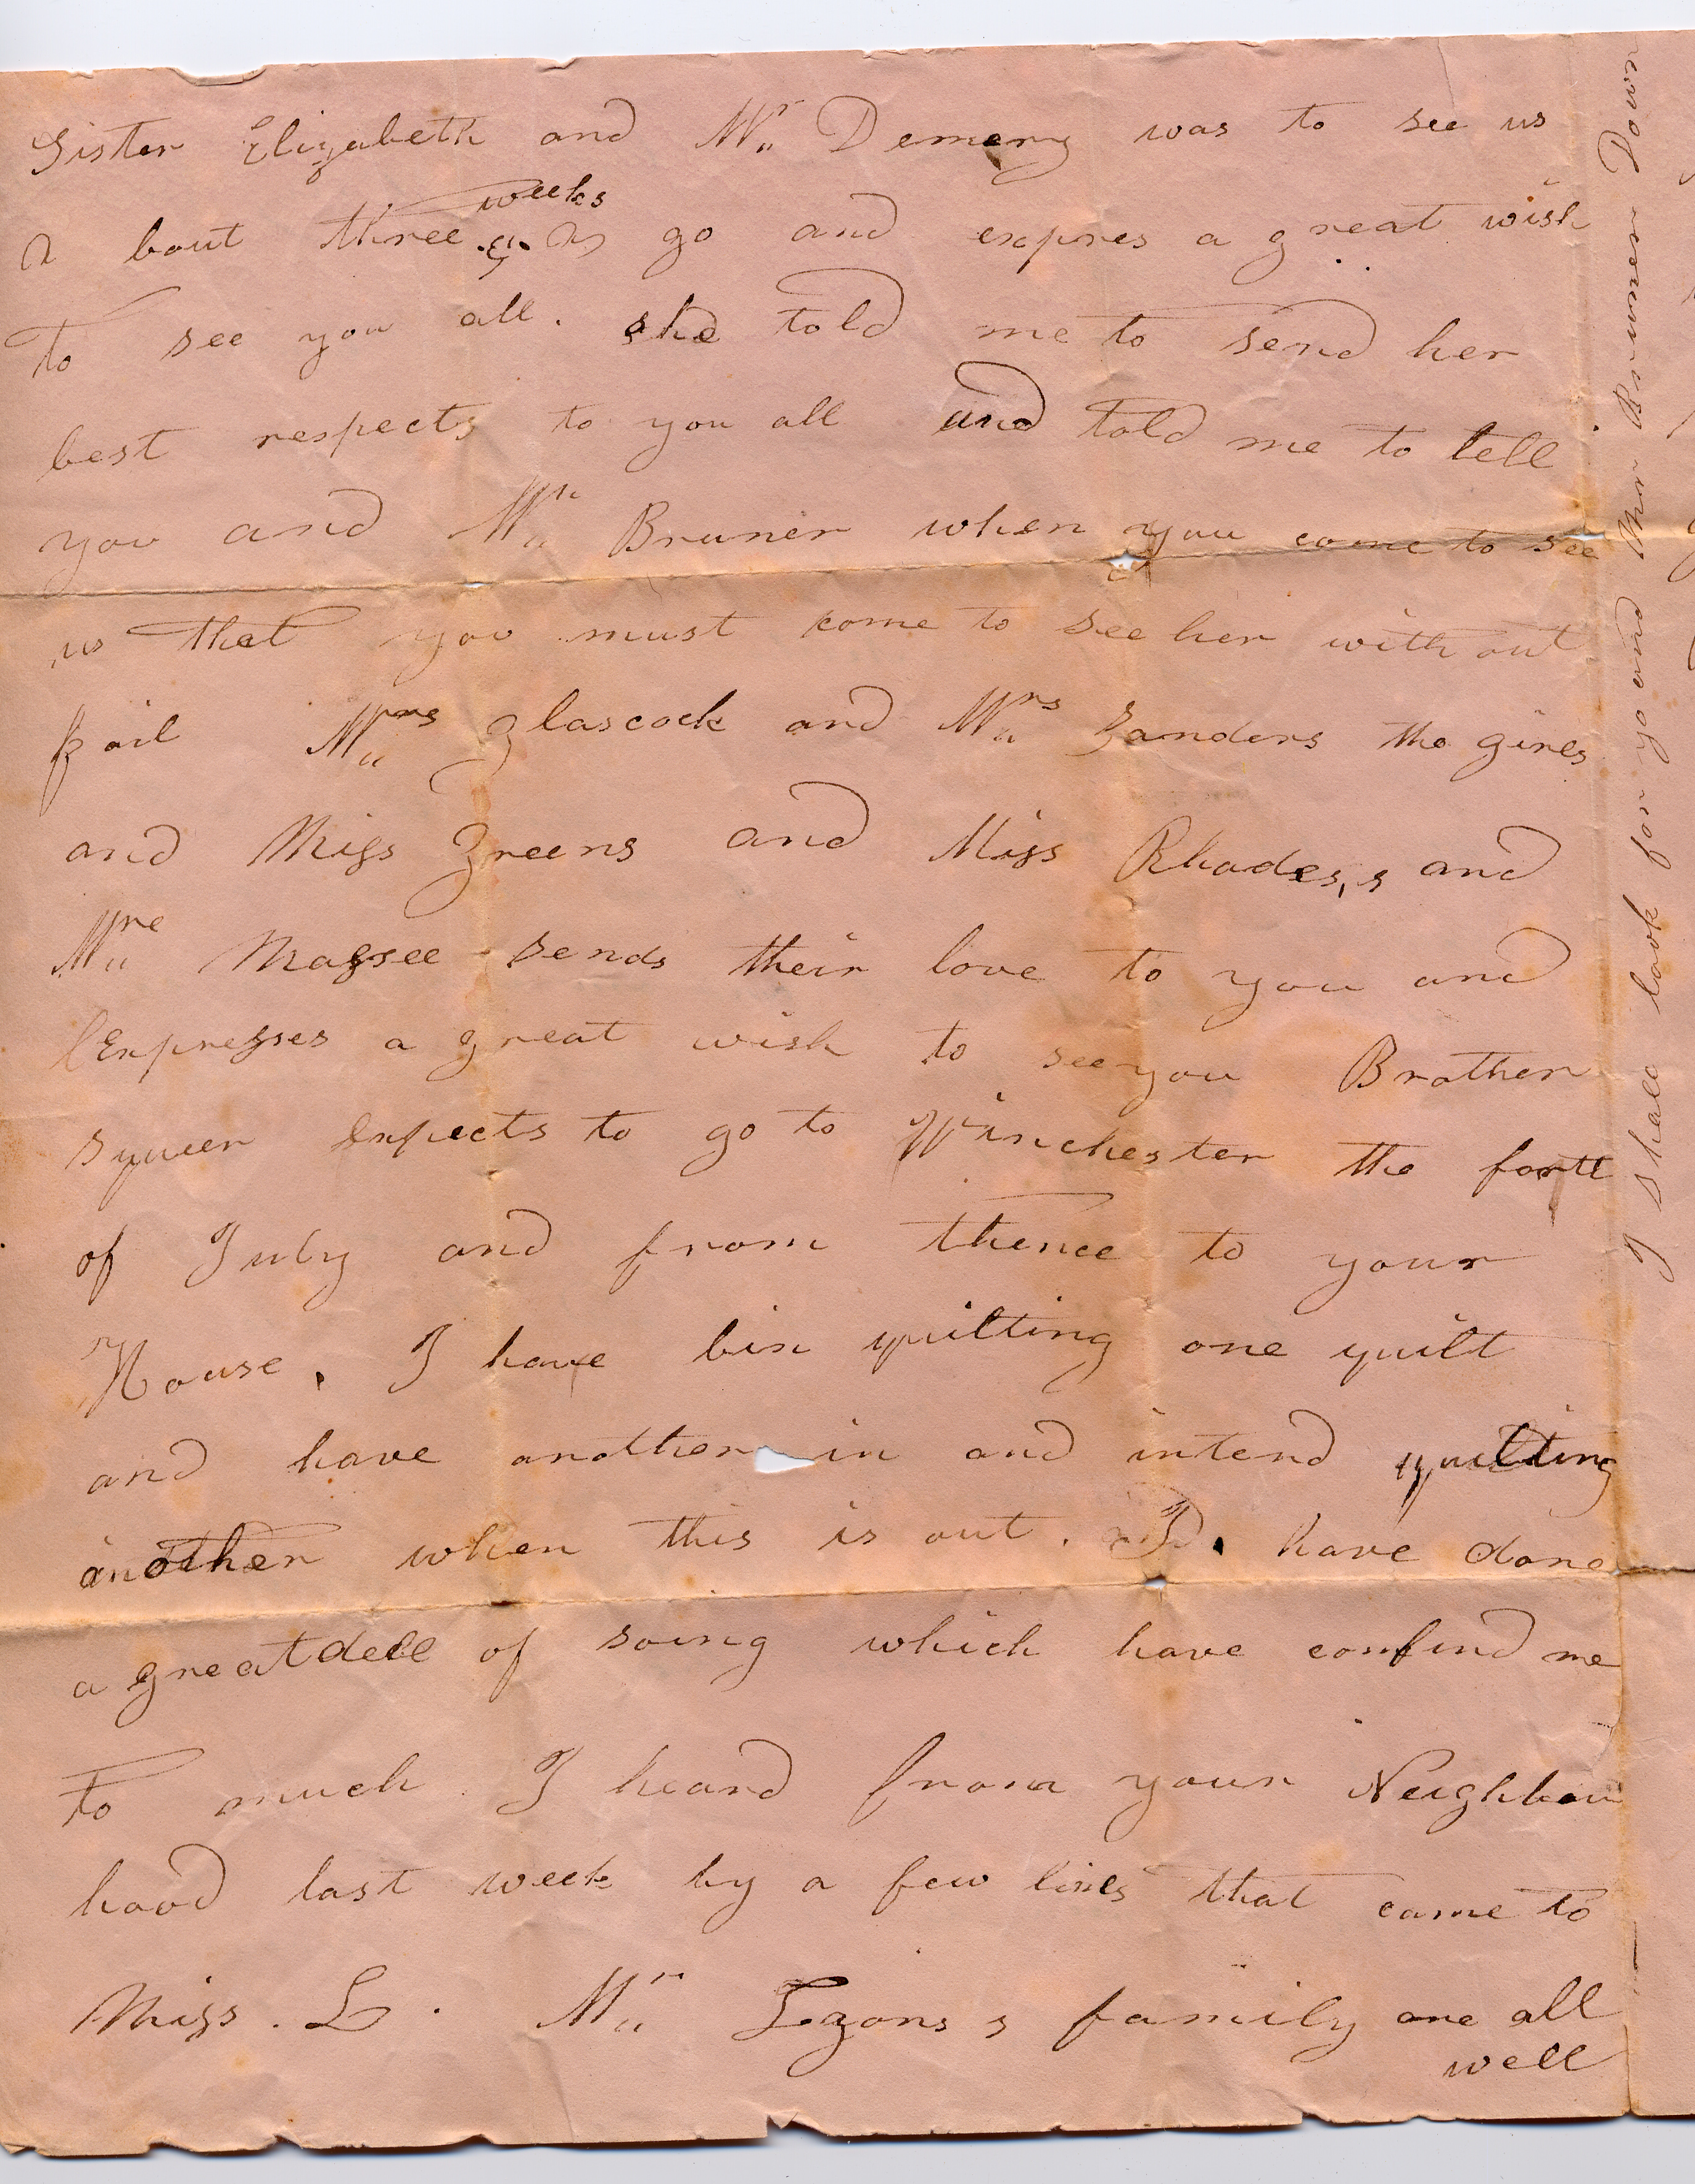 Sister Elizabeth and Mr Demery was to see us
a bout three weeks a go and expres a great wish
To see you all. she told me to send her
best respects to you all and told me to tell
you and Mr Bruner when you come to see
us that you must come to see her with out
fail Mrs Glascock and Mrs Sanders the girles
and Miss Greens and Miss Rhodes,s and
Mrs Magsee sends their love to you and
Expresses a great wish to see you Brother
Squeer Expects to go to Winchester the forth
of July and from thence to your
House, I have bin quilting one quilt
and have another in and intend quilting
another when this is out. I have done
a great deel of soing which have confind me
To much I heard from your Neighbour
hood last week by a few lines that came to
Miss. L. Mr family are all
well
I shall look for yo and Mr Brunner Down